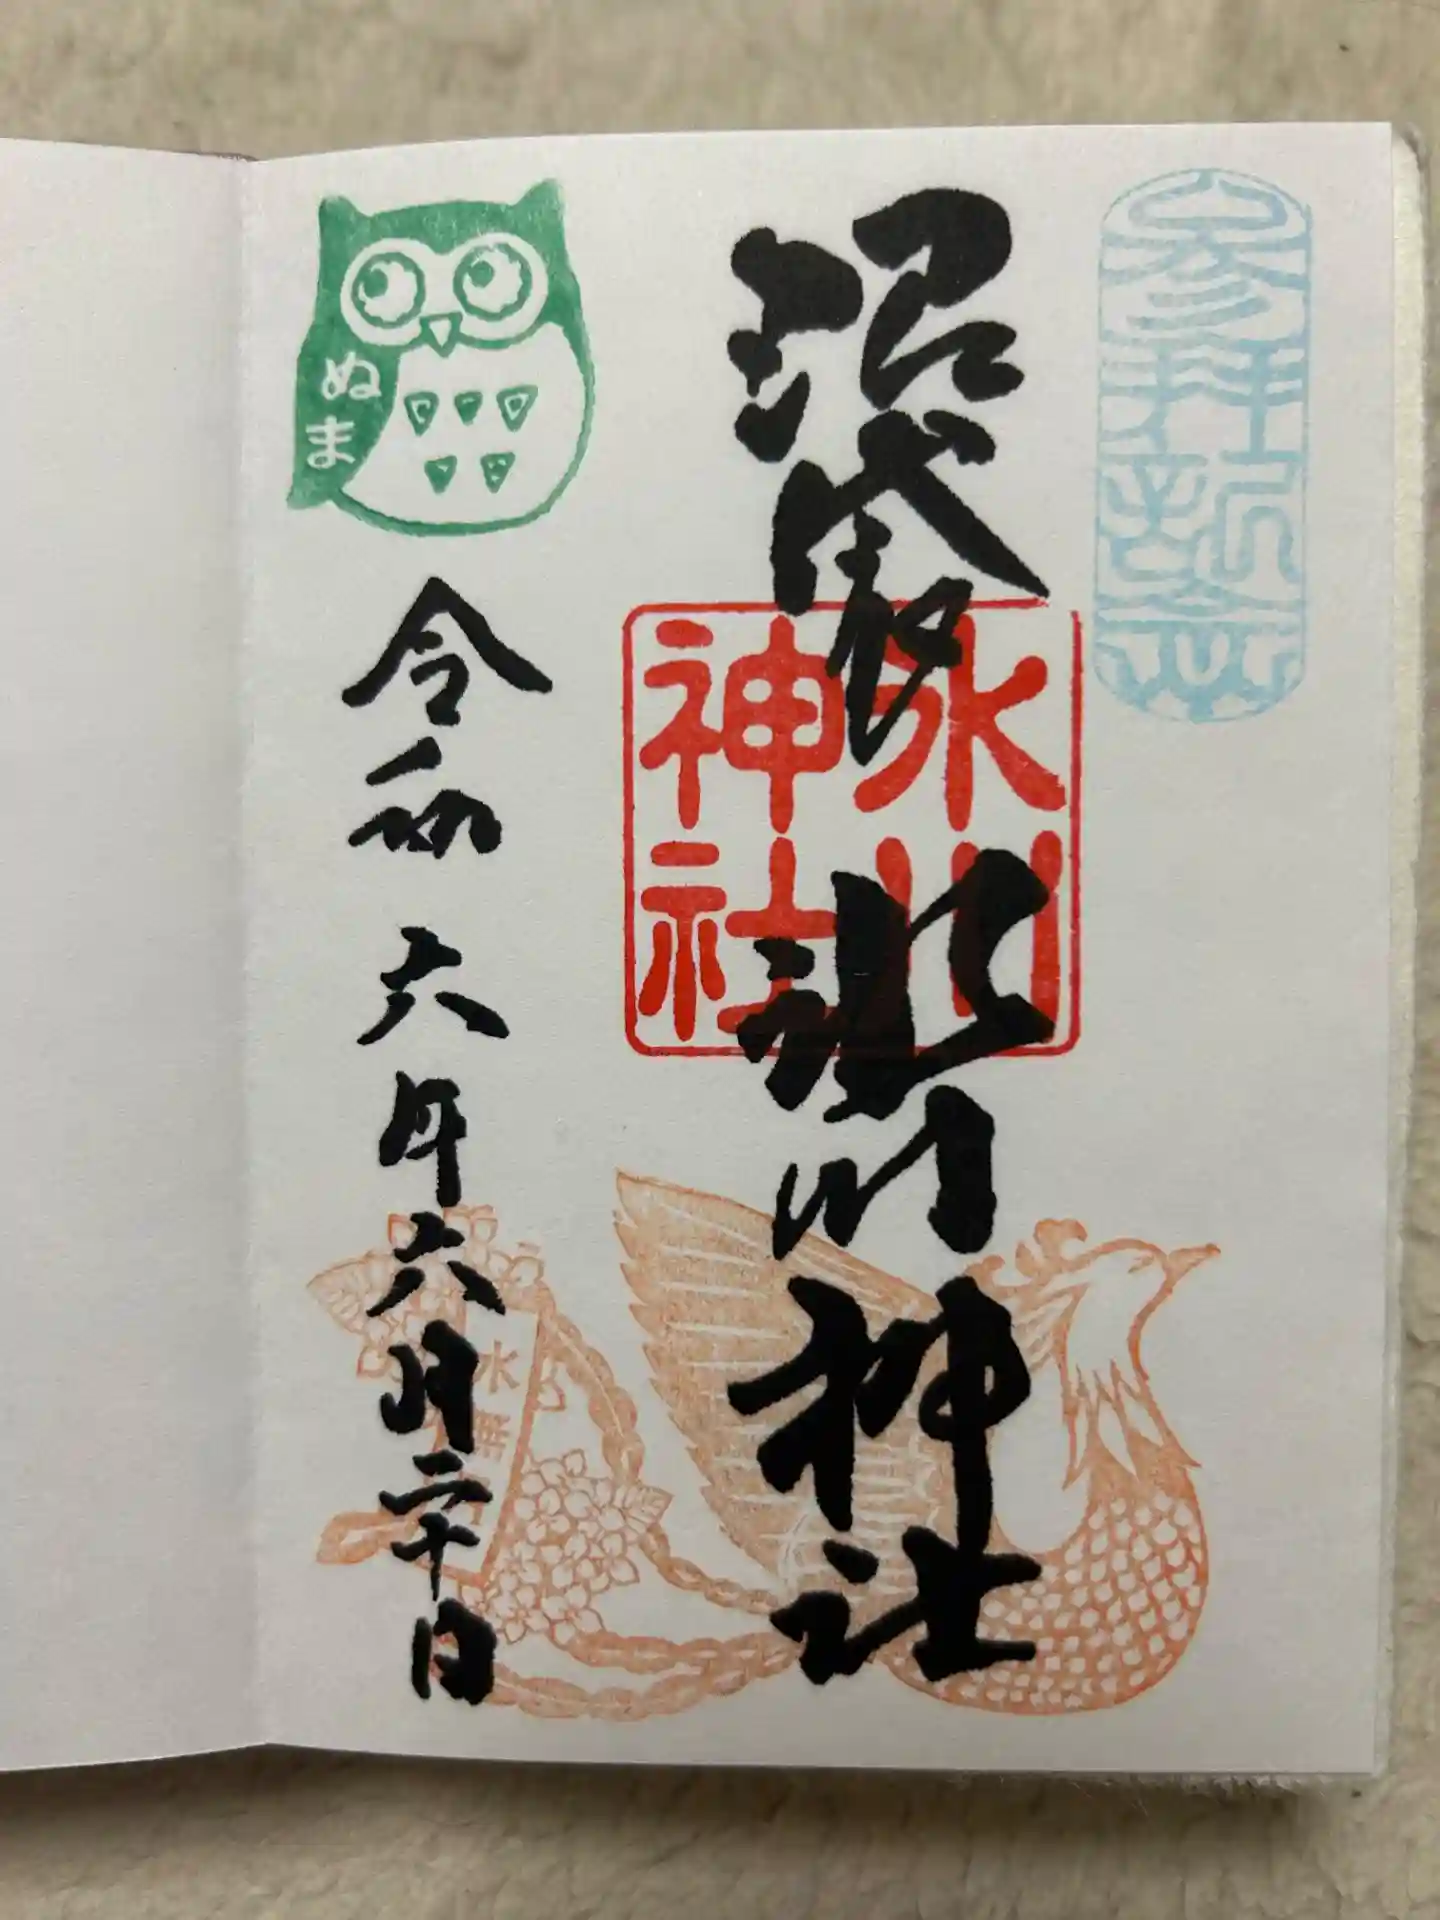 参拝祈念
沼袋氷川神社
氷川
神社
ぬま
令和六年六月二十日
水無